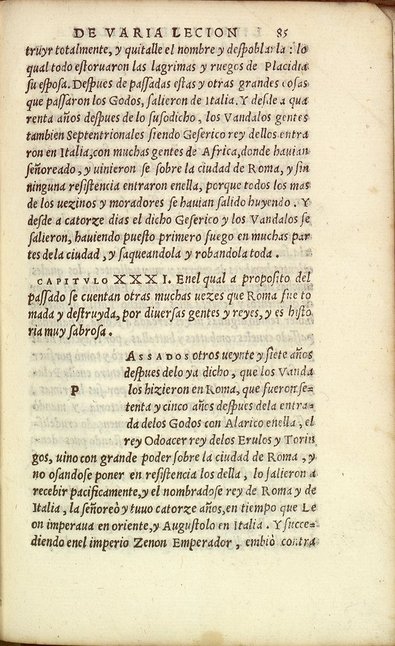 DE VARIA LECION 85
truyr totalmente, y quitalle el nombre y despoblarla : lo
qual todo estoruaron las lagrimas y ruegos de Placidia
su esposa. Despues de passadas estas y otras grandes cosas
que passáron los Godos, salieron de Italia. Y desde a qua
renta años despues de lo susodicho, los Vandalos gentes
tambien Septentrionales siendo Geserico rey dellos entra
ron en Italia, con muchas gentes de Africa, donde hauian
señoreado, y uinieron se sobre la ciudad de Roma, y sin
ninguna resistencia entraron enella, porque todos los mas
de los uezinos y moradores se hauian salido huyendo . Y
desde a catorze dias el dicho Geserico y los Vandalos se
salieron, hauiendo puesto primero fuego en muchas par
tes dela ciudad , y saqueandola y robandola toda .
CAPITVLO XXXI. Enel qual a proposito del
passado se cuentan otras muchas uezes que Roma fue to
mada y destruyda, por diuersas gentes y reyes, y es histo
ria muy sabrosa .
P ASSADOS otros ueynte y siete años
despues delo ya dicho , que los Vanda
los hizieron en Roma, que fueron se-
tenta y cinco años despues dela entra-
da delos Godos con Alarico enella , el
rey Odoacer rey delos Erulos y Torin
gos, uino con grande poder sobre la ciudad de Roma , y
no osandose poner en resistencia los della , lo salieron a
recebir pacificamente, y el nombradose rey de Roma y de
Italia , la señoreò y tuuo catorze años, en tiempo que Le
on imperaua en oriente, y Augustolo en Italia . Y succe-
diendo enel imperio Zenon Emperador , embiò contra